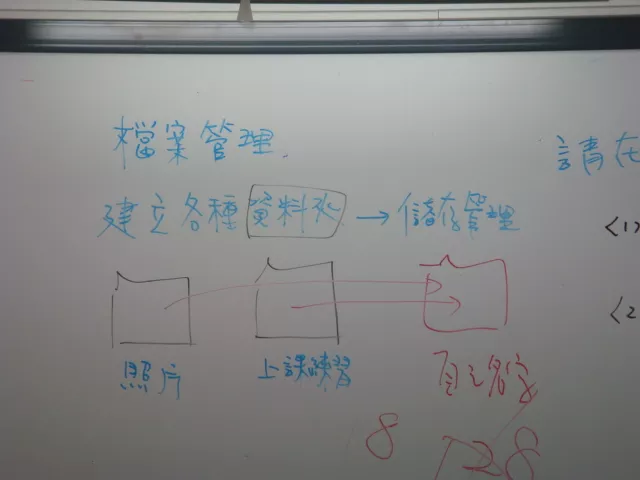 檔案管理.
建立各種資料夾→儲存管理
請在
<1>
<2
照片
上課練習
自己名字
8
128